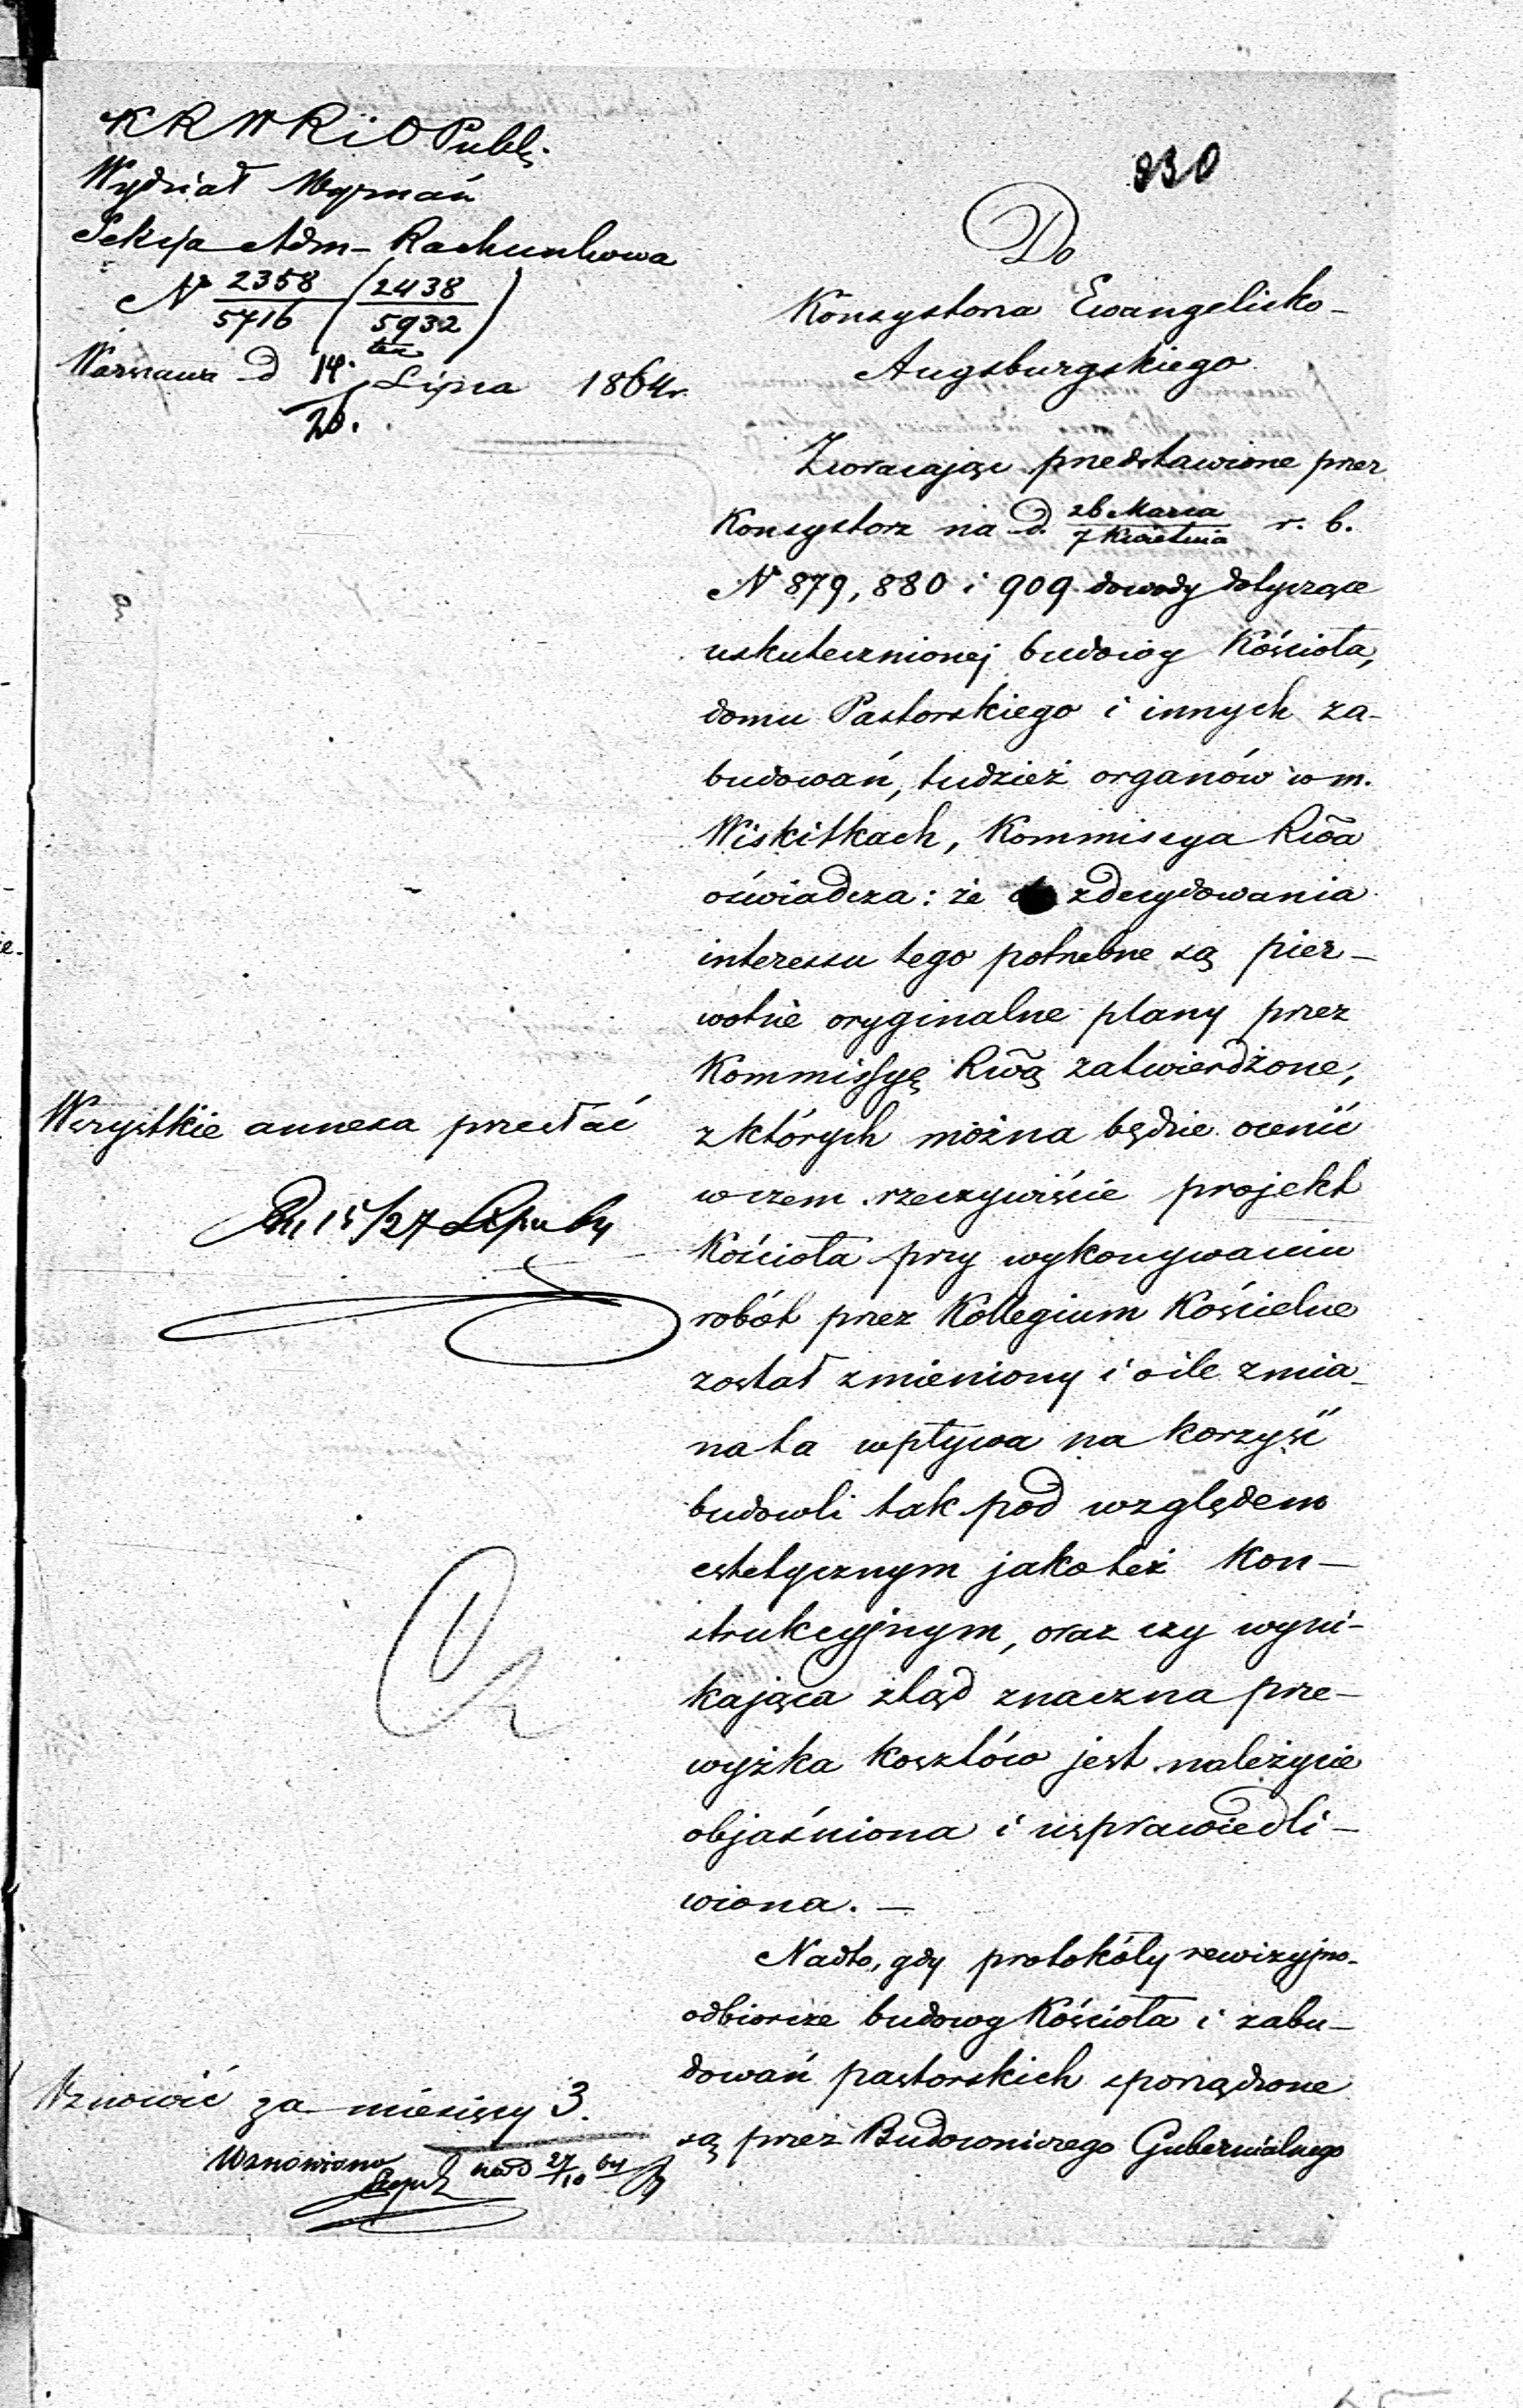 K R W R i O Publ:
Wydział Wyznań
Sekcja Adm- Rachunkowa
N 2358/5716 (2438/5932)
Warszawa d 14/26. Lipca 1864 r.
830
Do
Konsystorza Ewangelicko-
Augsburgskiego
Zwracając przedstawione przez
Konsystorz na d. 26 Marca/7 Kwietnia r. b.
N 879, 880 i 909 dowody dotyczące
uskutecznionej budowy Kościoła,
domu Pastorskiego i innych za-
budowań, tudzież organów w m.
Wiskitkach, Kommissya Rwa
oświadcza: że zdecydowania
interessu tego potrzebne są pier-
wotne oryginalne plany przez
Kommissyę Rwą zatwierdzone,
z których można będzie ocenić
w czem rzeczywiście projekt
Kościoła przy wykonywaniu
robót przez Kollegium Kościelne
został zmieniony i o ile zmia-
na ta wpływa na korzyść
budowli tak pod względem
estetycznym jakoteż kon-
strukcyjnym, oraz czy wyni-
kająca ztąd znaczna prze-
wyżka kosztów jest należycie
objaśniona i usprawiedli-
wiona. —
Nadto, gdy protokóły rewizyjno-
odbiorcze budowy Kościoła i zabu-
dowań pastorskich sporządzone
są przez Budowniczego Gubernialnego
Wszystkie annexa przesłać
15/27 Lipca 64
Wznowić za miesięcy 3.
Wznowiono
na d 27/10 64